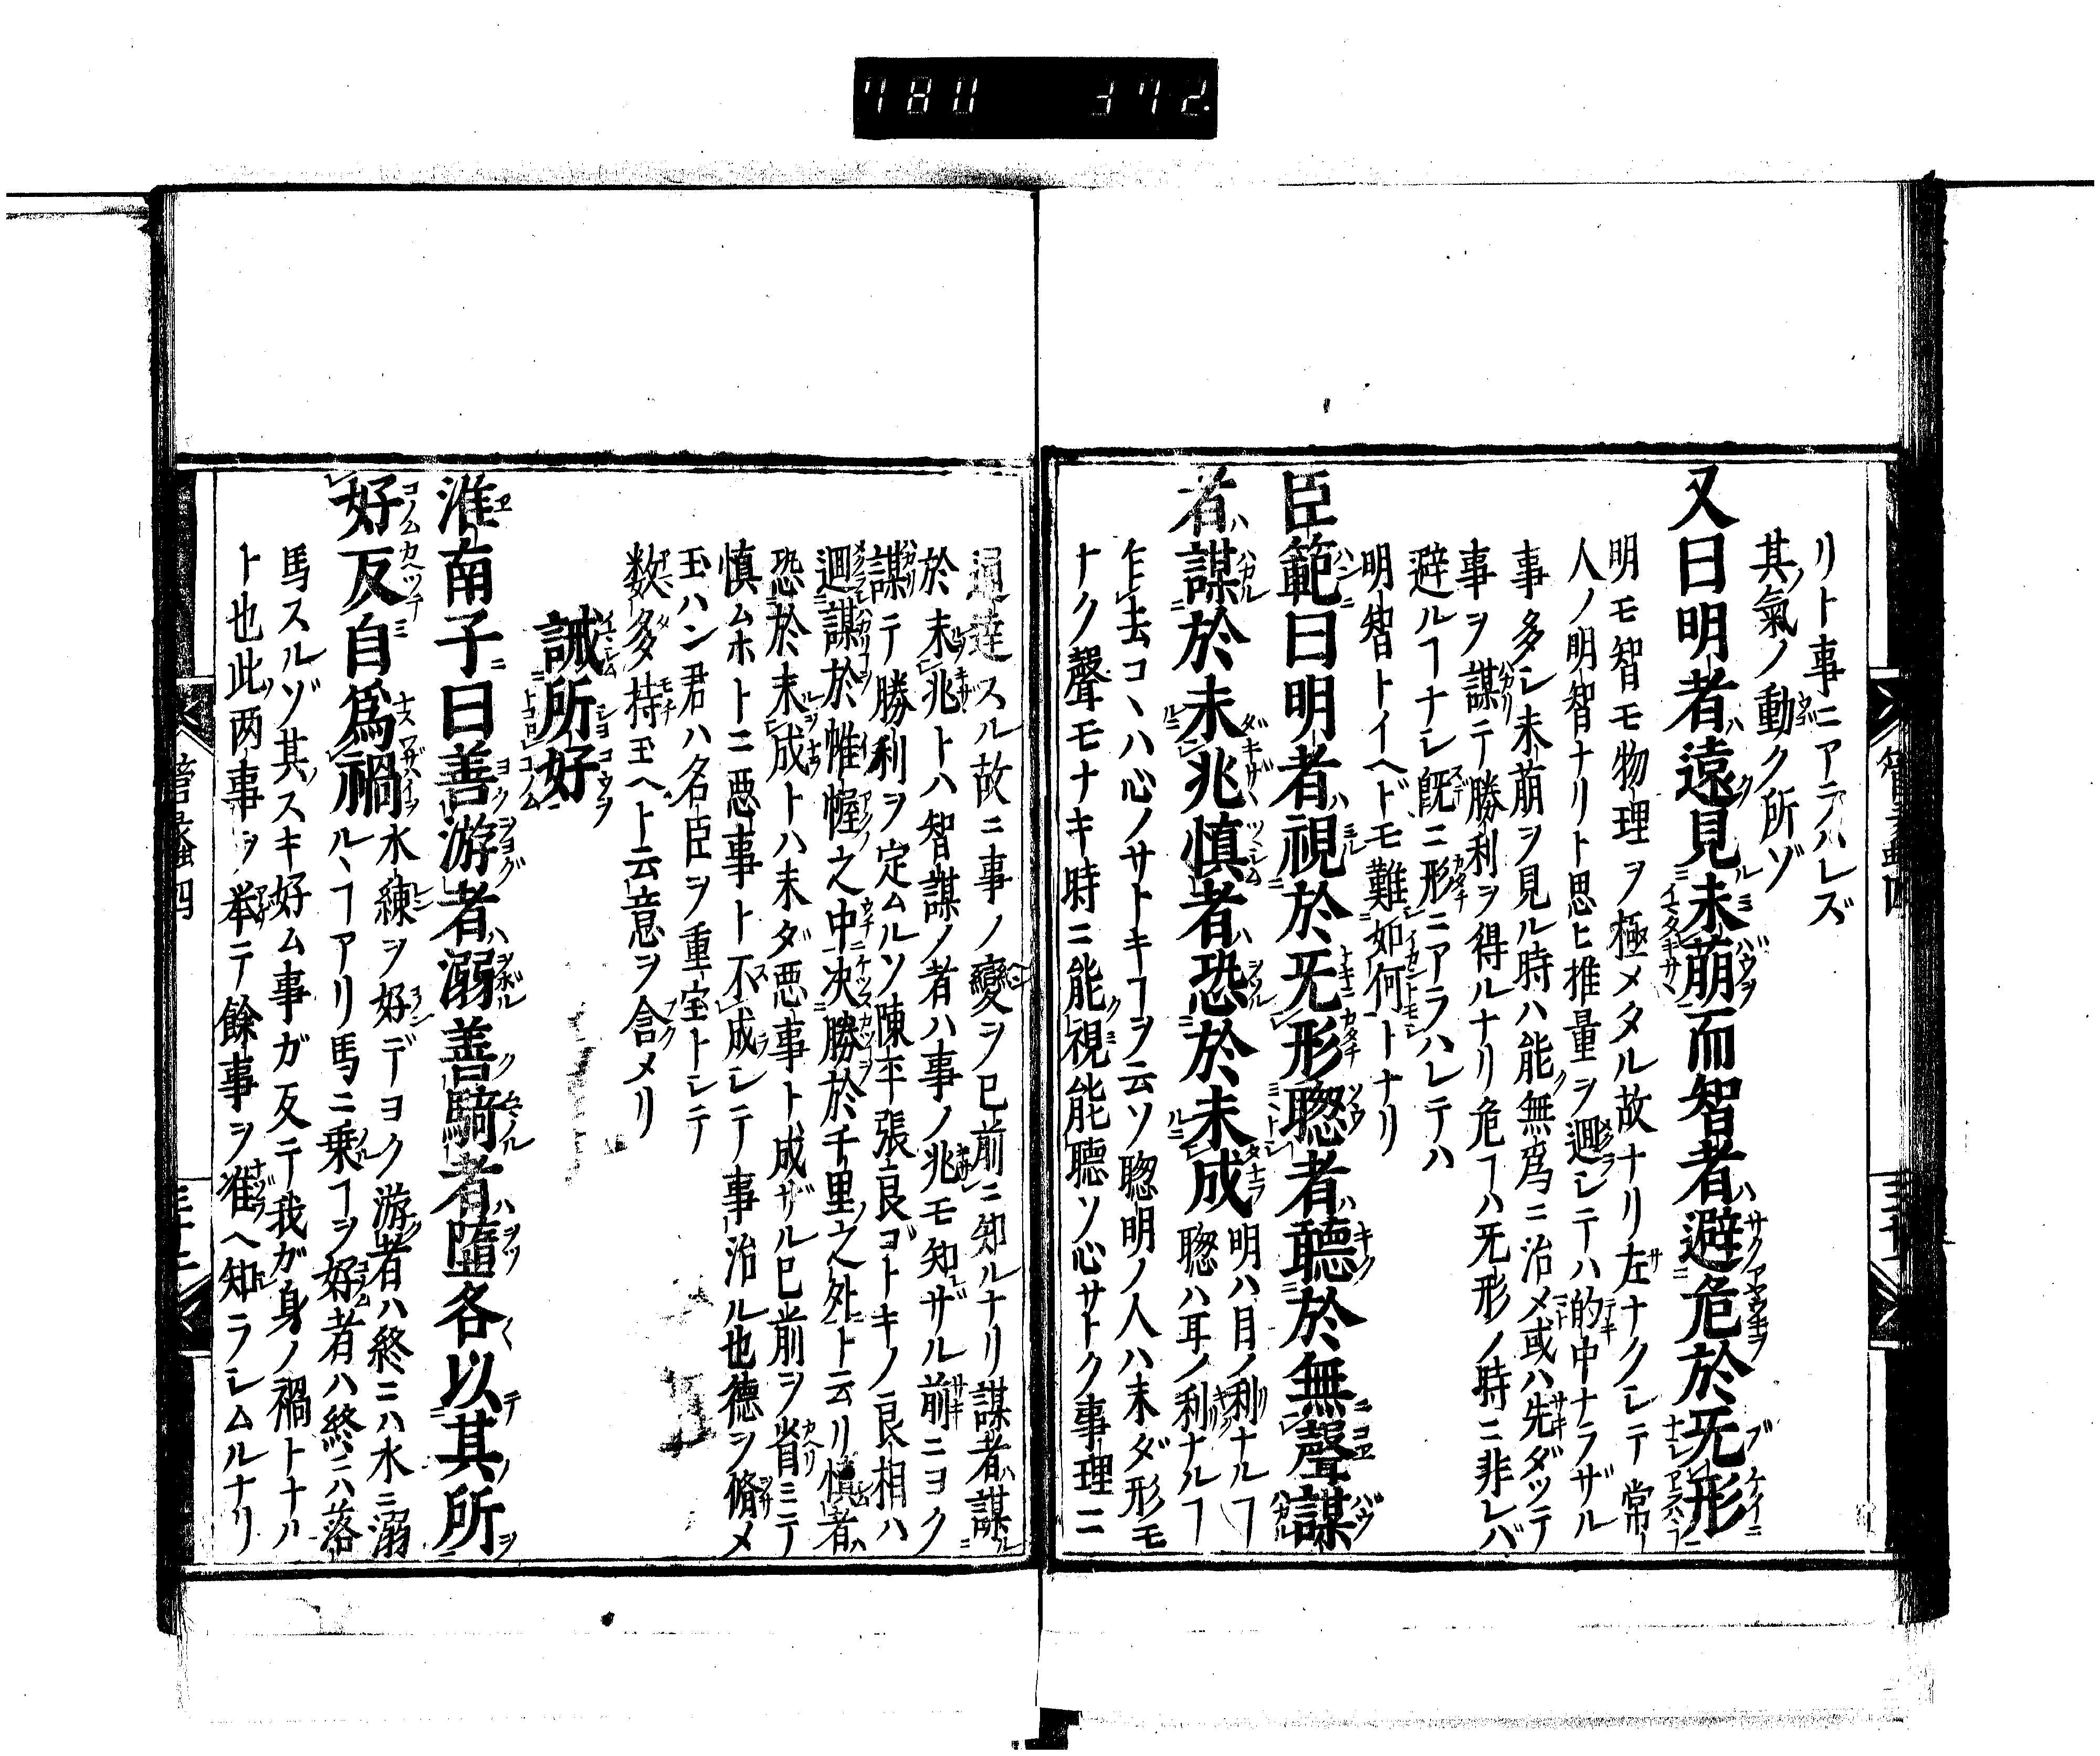 780 372
リト事ニアラハレズ
其氣ノ動ク所ゾ
又曰明者遠見未萠而智者避危於旡形
明モ智モ物理ヲ極メタル故ナリ左ナクレテ常ノ
人ノ明智ナリト思ヒ推量ヲ廻レテハ的中ナラザル
事多レ未萠ヲ見ル時ハ能無爲ニ治メ或ハ先ダッテ
事ヲ謀テ勝利ヲ得ルナリ危ヿハ旡形ノ時ニ非レバ
避ルヿナレ既ニ形ニアラハレテハ
明智トイヘドモ難如何トナリ
臣範曰明者視於旡形聰者聽於無聲謀
者謀於未兆慎者恐於未成
明ハ目ノ利ナルヿ
聰ハ耳ノ利ナルヿ
乍去コヽハ心ノサトキヿヲ云ソ聰明ノ人ハ未ダ形モ
ナク聲モナキ時ニ能視能聽ソ心サトク事理ニ
通達スル故ニ事ノ變ヲ已前ニ知ルナリ謀者謀
於未兆トハ智謀ノ者ハ事ノ兆モ知ザル前ニヨク
謀テ勝利ヲ定ムルソ陳平張良ゴトキノ良相ハ
廻謀於帷幄之中决勝於千里之外ト云リ慎者
恐於未成トハ未ダ悪事ト成ザル已前ヲ省ミテ
慎ムホトニ悪事ト不成レテ事治ル也德ヲ脩メ
玉ハン君ハ名臣ヲ重宝トレテ
数多持玉ヘト云意ヲ含メリ
誡所好
淮南子曰善游者溺善騎者墮各以其所
好反自爲禍
水練ヲ好デヨク游者ハ終ニハ水ニ溺
ルヽヿアリ馬ニ乗ヿヲ好者ハ終ニハ落
馬スルゾ其スキ好ム事ガ反テ我ガ身ノ禍トナル
ト也此两事ヲ挙テ餘事ヲ准ヘ知ラレムルナリ